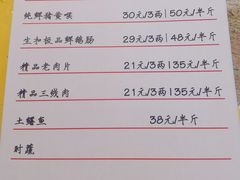 纯鲜猪黄喉 30元/3两|50元/半斤
生扣极品鲜鹅肠 29元/3两|48元/半斤
精品老肉片 21元/3两|35元/半斤
精品三线肉 21元/3两|35元/半斤
土鳝鱼 38元/半斤
时蔬